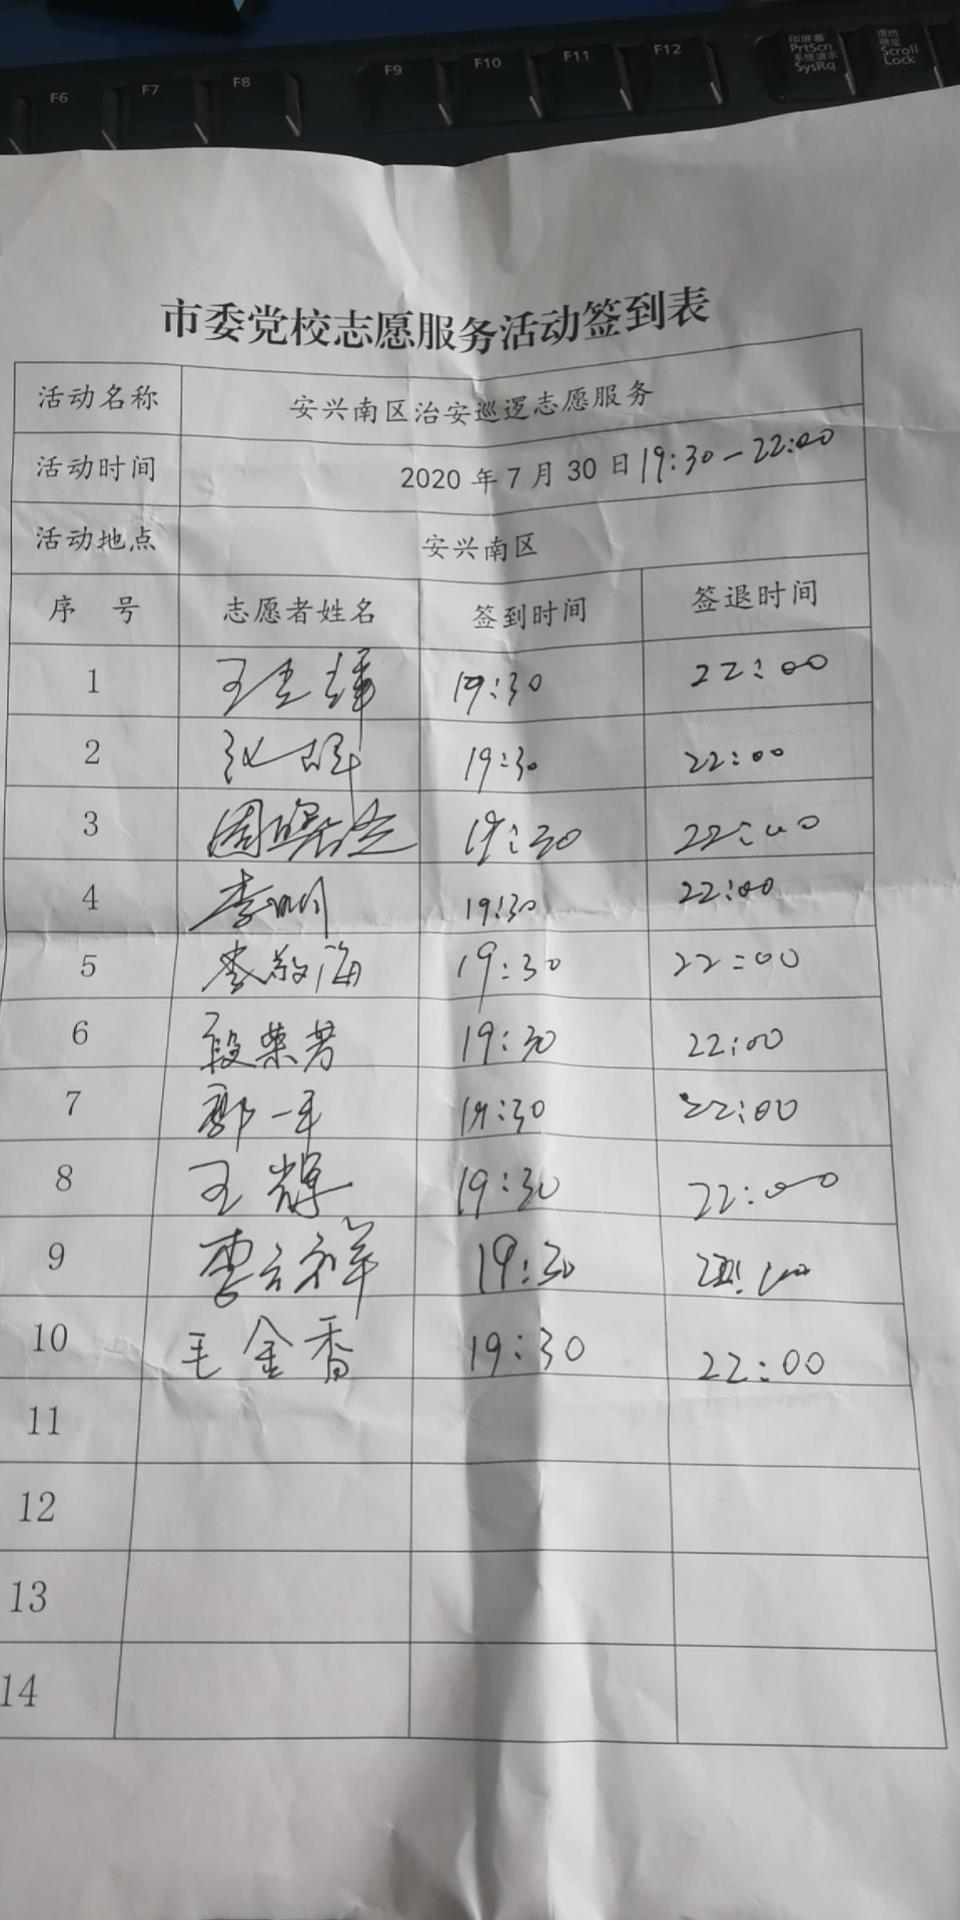 F6 F7 F8 F9 F10 F11 F12 印屏幕 PrtScn 系统请求 SysRq 滚动锁定 Scroll Lock
市委党校志愿服务活动签到表
活动名称 安兴南区治安巡逻志愿服务
活动时间 2020年7月30日 19:30-22:00
活动地点 安兴南区
序 号 志愿者姓名 签到时间 签退时间
1 19:30 22:00
2 19:30 22:00
3 19:30 22:00
4 李明 19:30 22:00
5 李敬海 19:30 22:00
6 段荣芳 19:30 22:00
7 郭一平 19:30 22:00
8 王辉 19:30 22:00
9 李云祥 19:30
10 毛金香 19:30 22:00
11
12
13
14